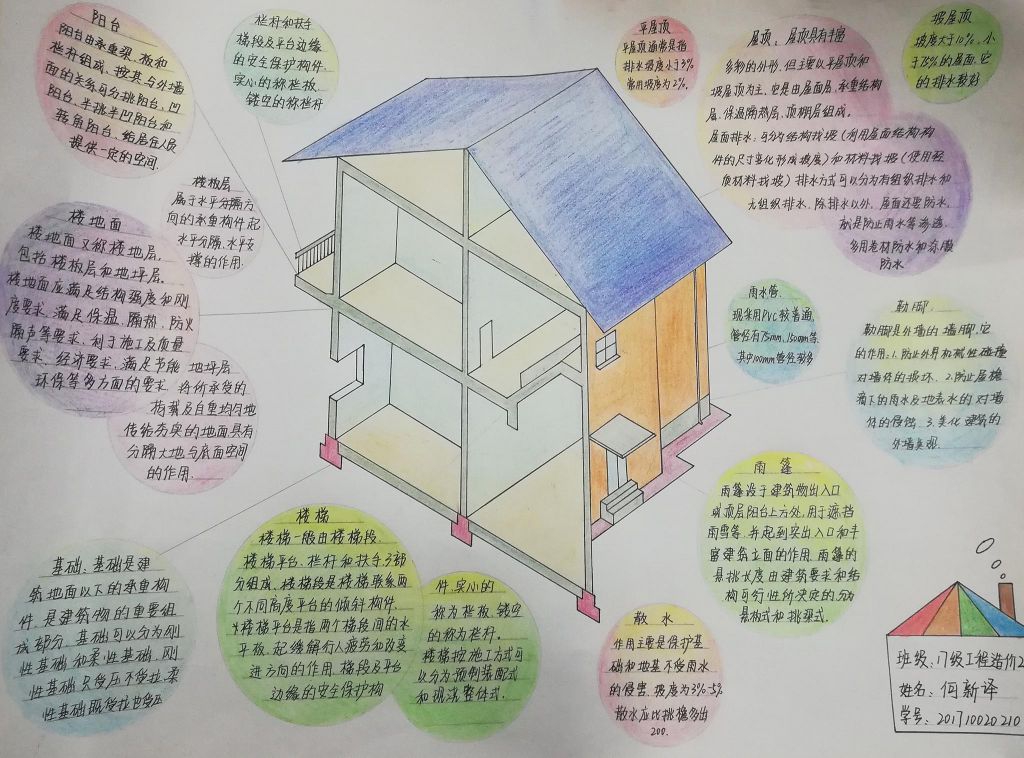 阳台
阳台由承重梁、板和
栏杆组成、按其与外墙
面的关系可分挑阳台、凹
阳台、半挑半凹阳台和
转角阳台、给居住人员
提供一定的空间.
栏杆和扶手
梯段及平台边缘
的安全保护构件.
实心的称栏板.
镂空的称栏杆
平屋顶
平屋顶通常是指
排水坡度小于3%
常用坡度为2%.
屋顶:屋顶具有丰富
多彩的外形.但主要以平屋顶和
坡屋顶为主.它是由屋面层、承重结构
层、保温隔热层、顶棚层组成.
屋面排水:可分为结构找坡(利用屋面结构构
件的尺寸变化形成坡度)和材料找坡(使用轻
质材料找坡)排水方式可以分为有组织排水和
无组织排水、除排水以外、屋面还要防水.
就是防止雨水等渗透.
多用卷材防水和
防水
坡屋顶
坡度大于10%、小
于75%的屋面.它
的排水较好
楼板层
属于水平分隔方
向的承重构件起
水平分隔、水平支
撑的作用.
楼地面
楼地面又称楼地层.
包括楼板层和地坪层.
楼地面应满足结构强度和刚
度要求、满足保温、隔热、防火
隔声等要求、利于施工及质量
要求、经济要求、满足节能
环保等多方面的要求.
地坪层
将所承受的
荷载及自重均匀地
传给夯实的地面具有
分隔大地与底面空间
的作用.
雨水管.
现采用PVC较普遍
管径有75mm、100mm等
其中100mm管径较多
勒脚.
勒脚是外墙的墙脚.它
的作用:1.防止外界机械性碰撞
对墙体的损坏、2.防止屋檐
滴下的雨水及地表水的对墙
体的侵蚀.3.美化建筑的
外墙美观.
雨篷
雨篷设于建筑物出入口
或顶层阳台上方处.用于遮挡
雨雪等.并起到突出入口和丰
富建筑立面的作用.雨篷的
悬挑长度由建筑要求和结
构可行性所决定的.分为
悬板式和挑梁式.
基础:基础是建
筑地面以下的承重构
件.是建筑物的重要组
成部分.基础可以分为刚
性基础和柔性基础.刚
性基础只受压不受拉.柔
性基础既受拉也受压
楼梯
楼梯一般由楼梯段.
楼梯平台、栏杆和扶手3部
分组成、楼梯段是楼梯联系两
个不同高度平台的倾斜构件.
楼梯平台是指两个梯段间的水
平板.起缓解行人疲劳和改变
进方向的作用.梯段及平台
边缘的安全保护构
件,实心的
称为栏板、镂空
的称为栏杆.
楼梯按施工方式可
以分为预制装配式
和现浇整体式.
散水
作用主要是保护基
础和地基不受雨水
的侵蚀.坡度为3%-5%
散水应比挑檐多出
200.
班级:17级工程造价2
姓名:何新译
学号:201710020210